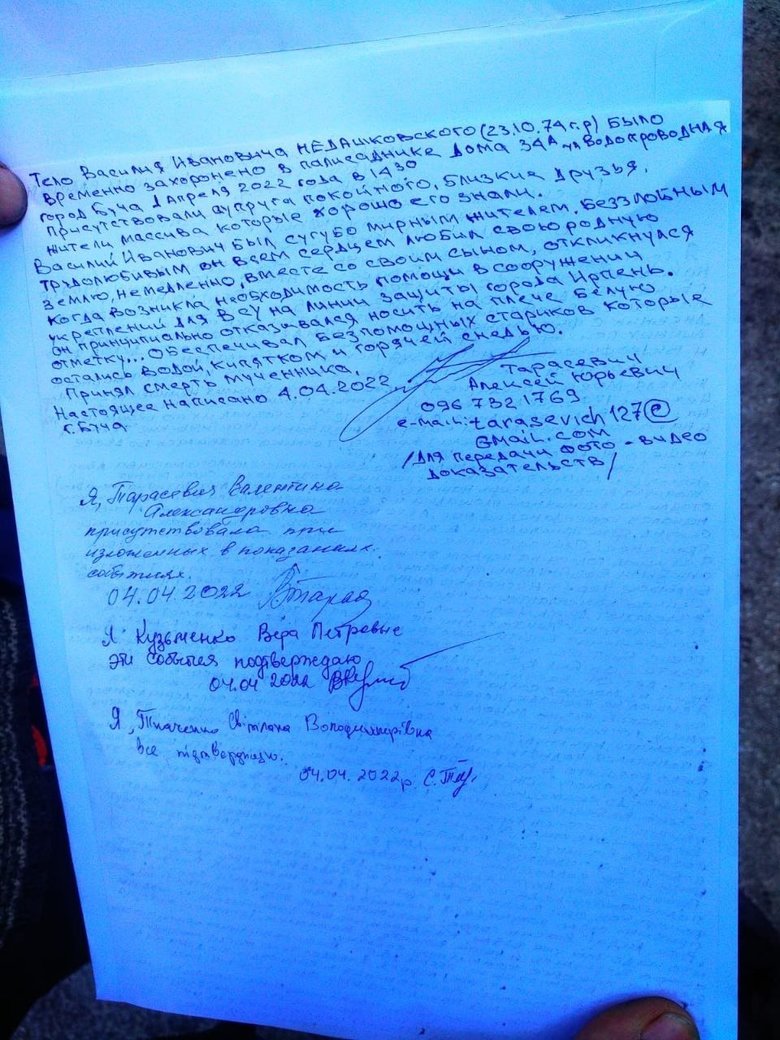 Тело Василия Ивановича НЕДАШКОВСКОГО (23.10.74г.р) было
временно захоронено в палисаднике дома 34А ул Водопроводная
город Буча 1 Апреля 2022 года в 1430
присутствовали супруга покойного, близкие друзья,
жители массива которые хорошо его знали.
Василий Иванович был сугубо мирным жителем. Беззлобным
трудолюбивым он всем сердцем любил свою родную
землю, немедленно, вместе со своим сыном, откликнулся
когда возникла необходимость помощи в сооружении
укреплений для ВСУ на линии защиты города Ирпень.
Он принципиально отказывался носить на плече белую
отметку... Обеспечивал безпомощных стариков которые
остались водой, кипятком и горячей снедью.
Принял смерть мученника.
Настоящее написано 4.04.2022
г. Буча
Тарасевич
Алексей Юрьевич
096 7321769
e-mail: tarasevich127@
GMail.com
/Для передачи фото-видео
доказательств/
Я, Тарасевич Валентина
Александровна
присутствовала при
изложенных в показаниях
событиях.
04.04 2022
Я Кузьменко Вера Петровне
эти события подтверждаю
04.04 2022
Я, Ткаченко Світлана Володимирівна
все підтверджую.
04.04.2022р